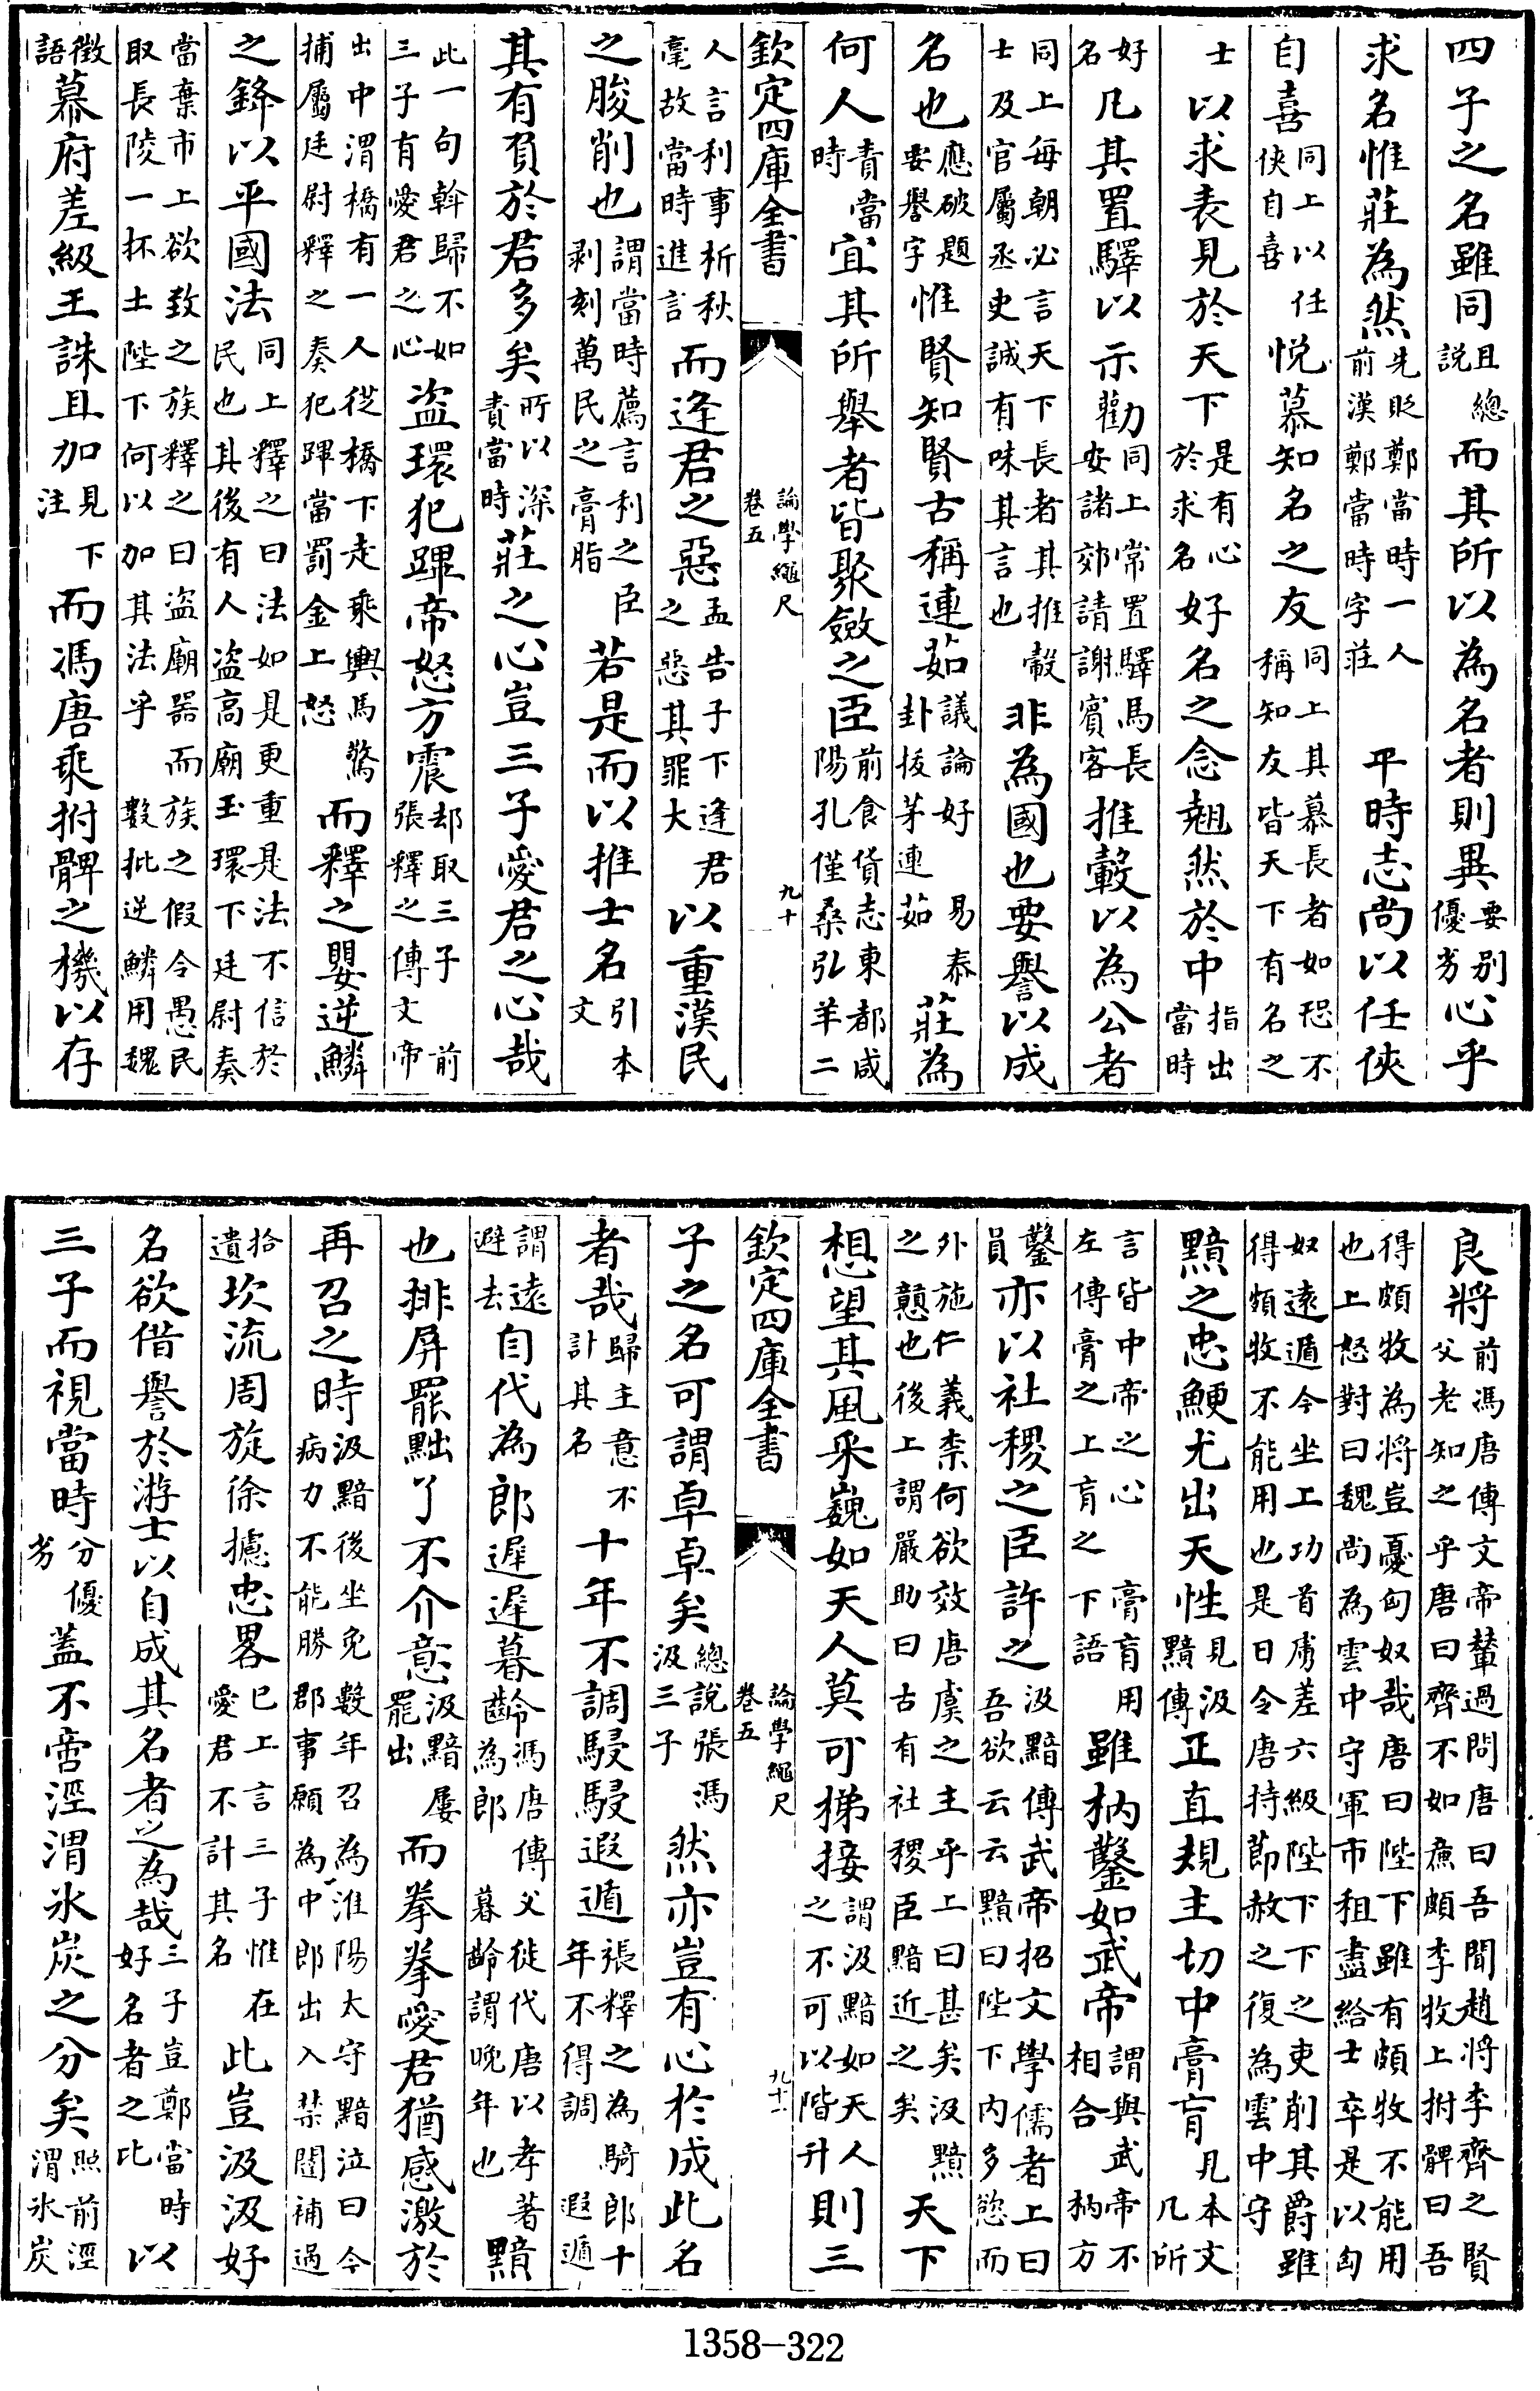 四子之名雖同且總説而其所以為名者則異要別優劣心乎
求名惟莊為然先貶鄭當時一人前漢鄭當時字莊平時志尚以任俠
自喜同上以任俠自喜悦慕知名之友同上其慕長者如恐不稱知友皆天下有名之
士以求表見於天下是有心於求名好名之念翹然於中指出當時
好名凡其置驛以示勸同上常置驛馬長安諸郊請謝賓客推轂以為公者
同上每朝必言天下長者其推轂士及官屬丞史誠有味其言也非為國也要譽以成
名也應破題要譽字惟賢知賢古稱連茹議論好易泰卦拔茅連茹莊為
何人責當時宜其所舉者皆聚斂之臣前食貨志東都咸陽孔僅桑弘羊二
欽定四庫全書
論學繩尺
卷五
九十
人言利事析秋毫故當時進言而逢君之惡孟告子下逢君之惡其罪大以重漢民
之朘削也謂當時薦言利之臣剥刻萬民之膏脂若是而以推士名引本文
其有負於君多矣所以深責當時莊之心豈三子愛君之心哉
此一句斡歸不如三子有愛君之心盜環犯蹕帝怒方震却取三子前張釋之傳文帝
出中渭橋有一人從橋下走乘輿馬驚捕屬廷尉釋之奏犯蹕當罰金上怒而釋之嬰逆鱗
之鋒以平國法同上釋之曰法如是更重是法不信於民也其後有人盜高廟玉環下廷尉奏
當棄市上欲致之族釋之曰盜廟器而族之假令愚民取長陵一抔土陛下何以加其法乎數批逆鱗用魏
徵語幕府差級王誅且加見下注而馮唐乘拊髀之機以存
良將前馮唐傳文帝輦過問唐曰吾聞趙將李齊之賢父老知之乎唐曰齊不如亷頗李牧上拊髀曰吾
得頗牧為將豈憂匈奴哉唐曰陛下雖有頗牧不能用也上怒對曰魏尚為雲中守軍市租盡給士卒是以匈
奴遠遁今坐上功首虜差六級陛下下之吏削其爵雖得頗牧不能用也是日令唐持節赦之復為雲中守
黯之忠鯁尤出天性見汲黯傳正直規主切中膏肓見本文几所
言皆中帝之心左傳膏之上肓之膏肓用下語雖枘鑿如武帝謂與武帝不相合枘方
鑿員亦以社稷之臣許之汲黯傳武帝招文學儒者上曰吾欲云云黯曰陛下内多慾而
外施仁義柰何欲效唐虞之主乎上曰甚矣汲黯之戇也後上謂嚴助曰古有社稷臣黯近之矣天下
想望其風采巍如天人莫可梯接謂汲黯如天人之不可以階升則三
欽定四庫全書
論學繩尺
卷五
九十一
子之名可謂卓卓矣總說張馮汲三子然亦豈有心於成此名
者哉歸主意不計其名十年不調駸駸遐遁張釋之為騎郎十年不得調遐遁
謂遠避去自代為郎遲遲暮齡馮唐傳父徙代唐以孝著為郎暮齡謂晚年也黯
也排屏罷黜了不介意汲黯屢罷出而拳拳愛君猶感激於
再召之時汲黯後坐免數年召為淮陽太守黯泣曰今病力不能勝郡事願為中郎出入禁闥補過
拾遺坎流周旋徐攄忠畧已上言三子惟在愛君不計其名此豈汲汲好
名欲借譽於游士以自成其名者之為哉三子豈鄭當時好名者之比以
三子而視當時分優劣蓋不啻涇渭氷炭之分矣照前涇渭氷炭
1358–322